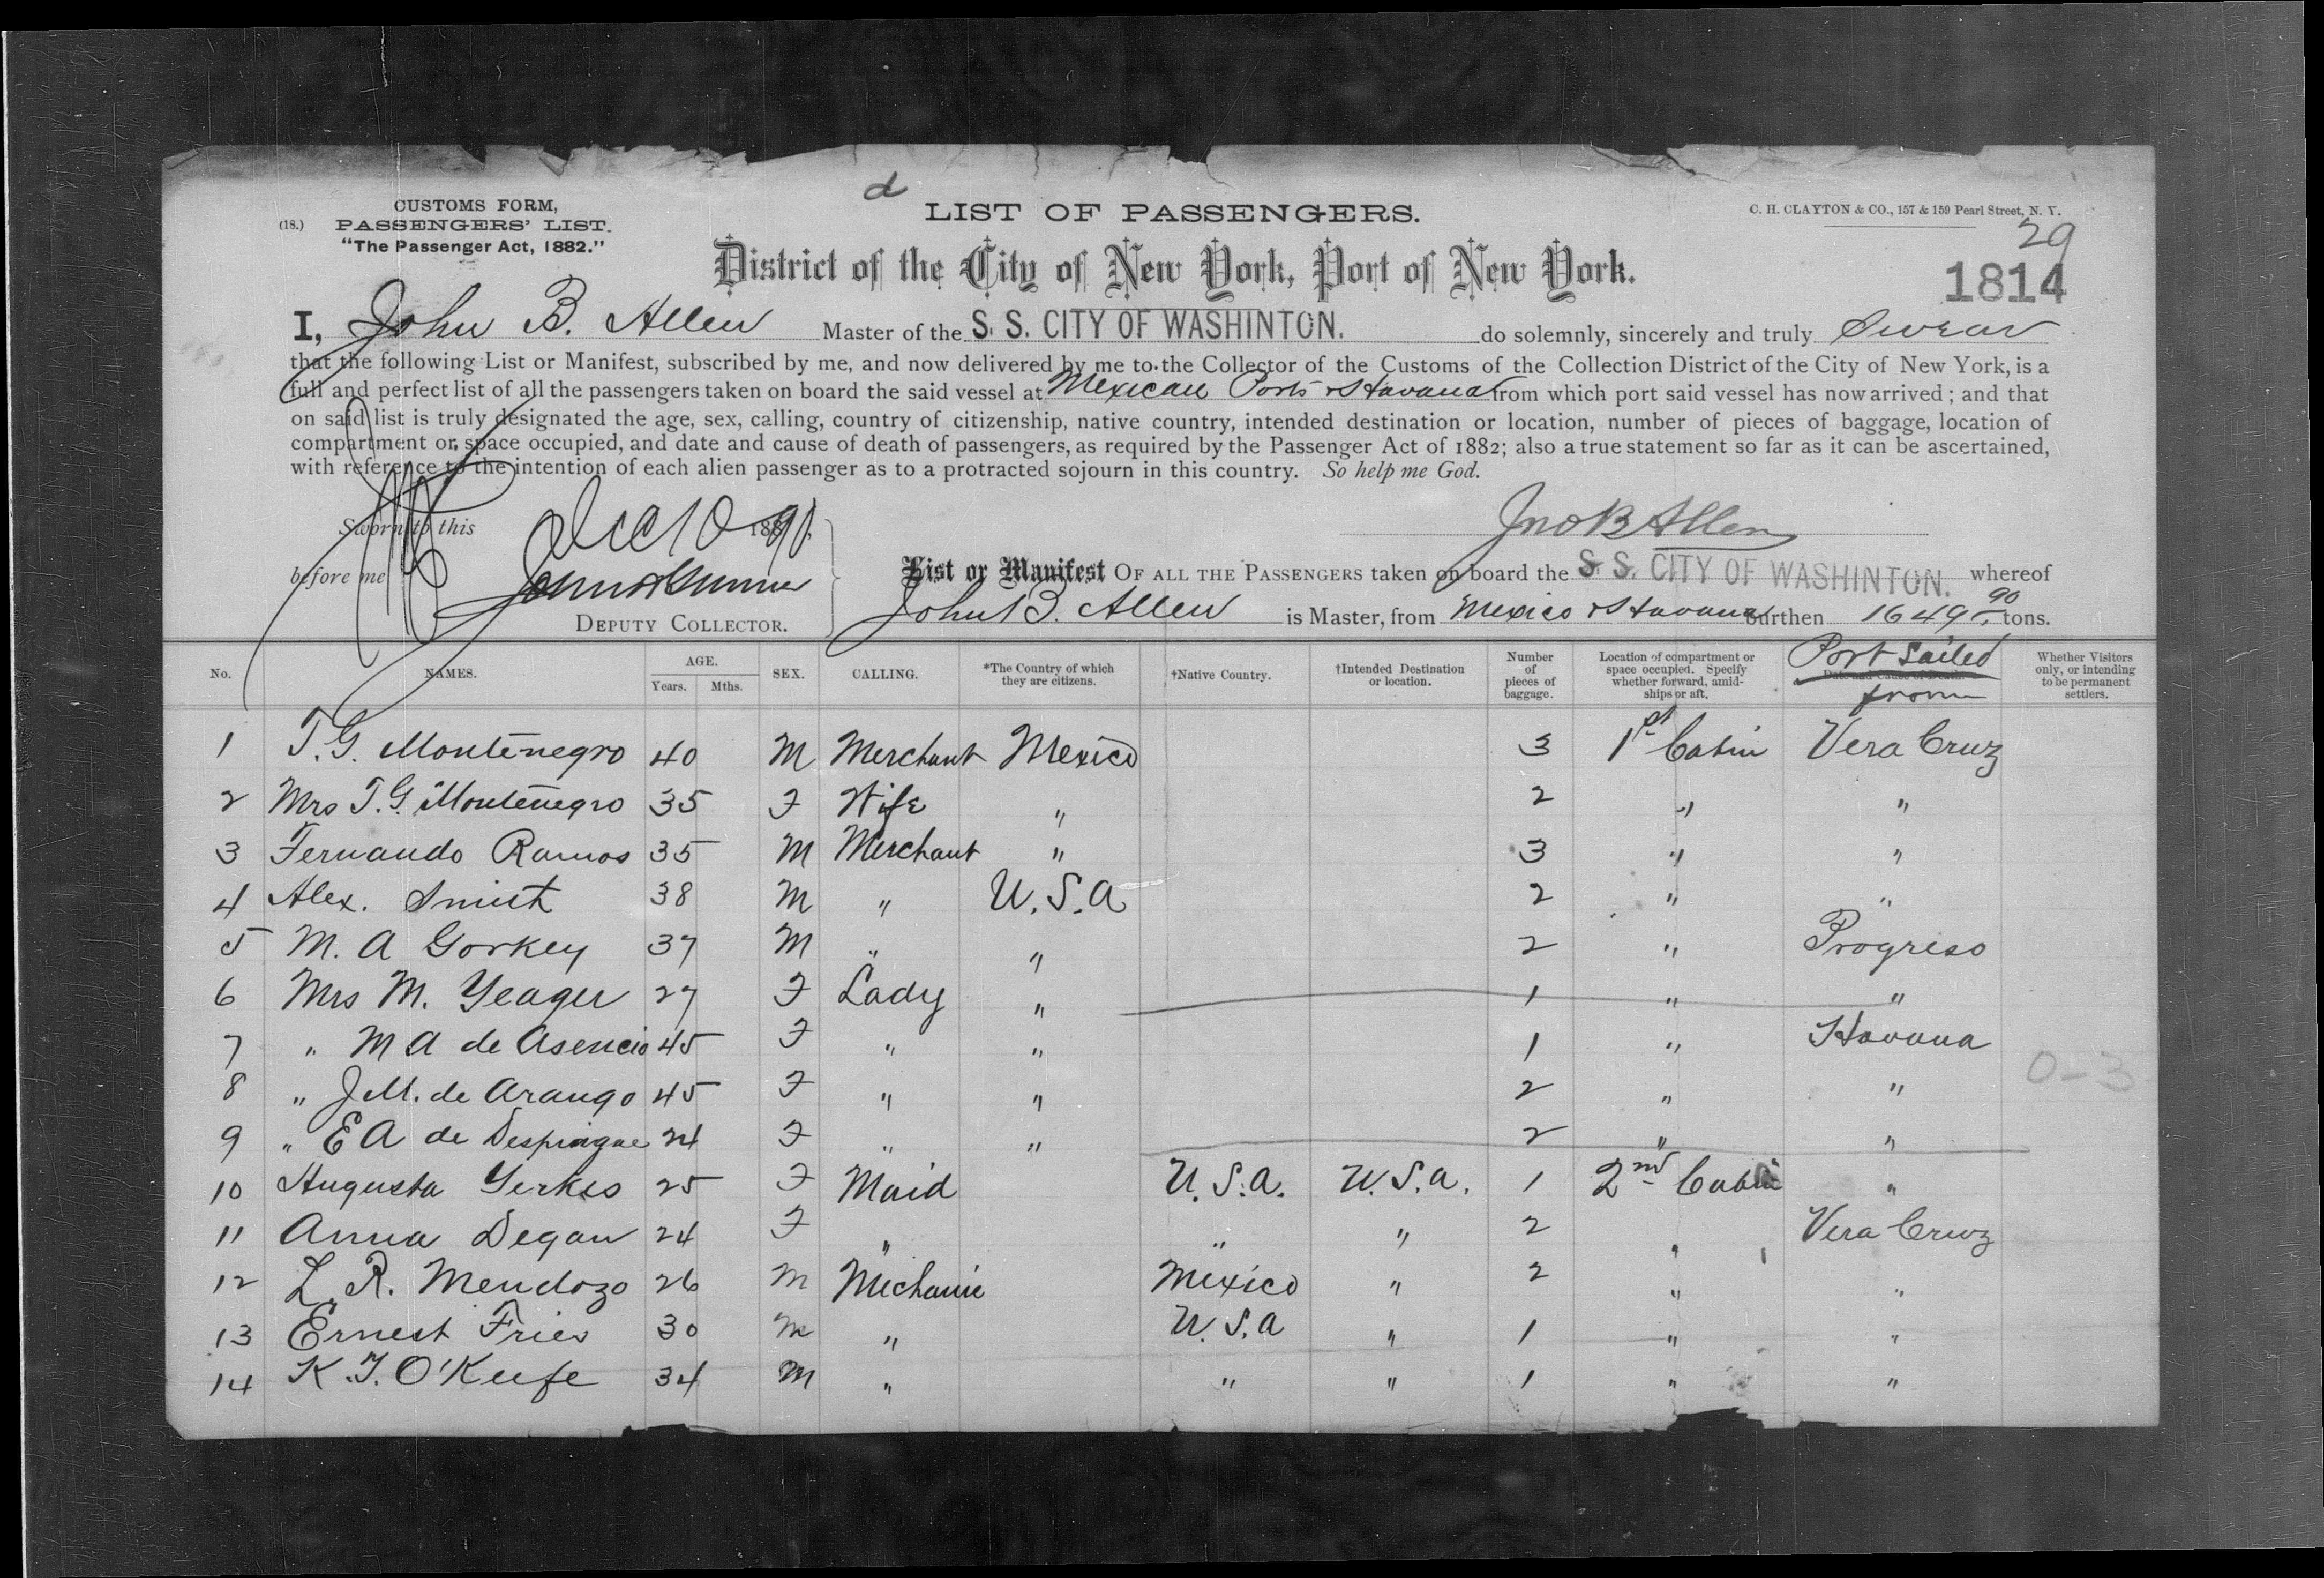 d
CUSTOMS FORM,
(18.) PASSENGERS' LIST.
"The Passenger Act, 1882."
LIST OF PASSENGERS.
C. H. CLAYTON & CO., 157 & 159 Pearl Street, N. Y.
29
District of the City of New York, Port of New York.
1814
I, John B. Allen Master of the S. S. CITY OF WASHINTON. do solemnly, sincerely and truly Swear
that the following List or Manifest, subscribed by me, and now delivered by me to the Collector of the Customs of the Collection District of the City of New York, is a
full and perfect list of all the passengers taken on board the said vessel at Mexican Ports & Havana from which port said vessel has now arrived; and that
on said list is truly designated the age, sex, calling, country of citizenship, native country, intended destination or location, number of pieces of baggage, location of
compartment or space occupied, and date and cause of death of passengers, as required by the Passenger Act of 1882; also a true statement so far as it can be ascertained,
with reference to the intention of each alien passenger as to a protracted sojourn in this country. So help me God.
Sworn to this Dec 10 1890.
Jno B Allen
before me
DEPUTY COLLECTOR.
List or Manifest OF ALL THE PASSENGERS taken on board the S. S. CITY OF WASHINTON. whereof
John B. Allen is Master, from Mexico & Havana burthen 1649 90 tons.
No. NAMES. AGE. Years. Mths. SEX. CALLING. *The Country of which they are citizens. †Native Country. †Intended Destination or location. Number of pieces of baggage. Location of compartment or space occupied. Specify whether forward, amidships or aft. Date and Cause of Death. Port Sailed from Whether Visitors only, or intending to be permanent settlers.
1 T. G. Montenegro 40 M Merchant Mexico 3 1st Cabin Vera Cruz
2 Mrs T. G. Montenegro 35 F Wife " 2 " "
3 Fernando Ramos 35 M Merchant " 3 " "
4 Alex. Smist 38 M " U.S.A 2 " "
5 M. A Gorkey 37 M " " 2 " Progreso
6 Mrs M. Yeager 27 F Lady " 1 " "
7 " M A de Asencio 45 F " " 1 " Havana
8 " J M. de Arango 45 F " " 2 " "
0-3
9 " E A de Despaigne 24 F " " 2 " "
10 Augusta Yerkes 25 F Maid U.S.A. U.S.A. 1 2nd Cabin "
11 Anna Degan 24 F " " " 2 " Vera Cruz
12 L. R. Mendozo 26 M Mechanic Mexico " 2 " "
13 Ernest Fries 30 M " U.S.A " 1 " "
14 K. T. O'Keefe 34 M " " " 1 " "